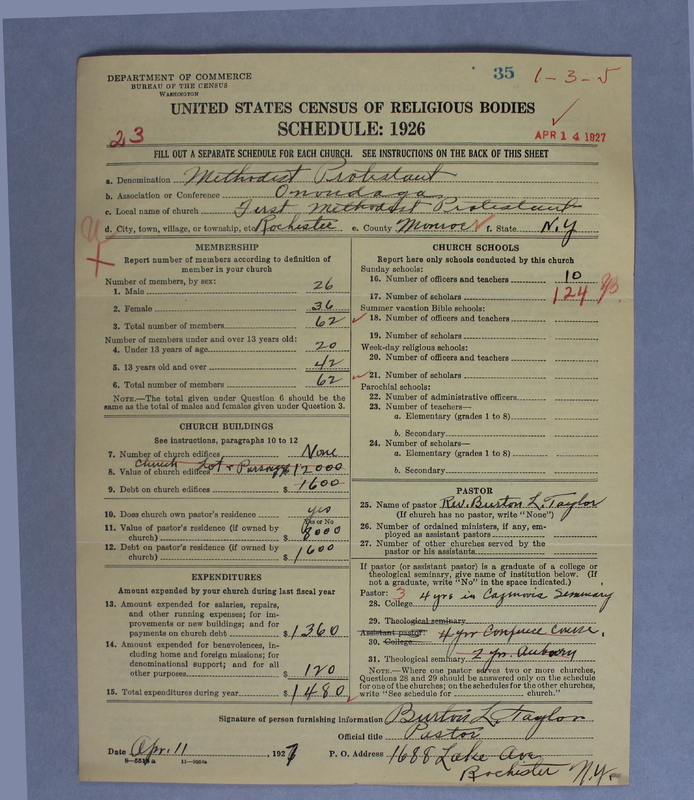 DEPARTMENT OF COMMERCE
BUREAU OF THE CENSUS
WASHINGTON
35 1-3-5
UNITED STATES CENSUS OF RELIGIOUS BODIES
SCHEDULE: 1926
23
APR 14 1927
FILL OUT A SEPARATE SCHEDULE FOR EACH CHURCH. SEE INSTRUCTIONS ON THE BACK OF THIS SHEET
a. Denomination Methodist Protestant
b. Association or Conference Onondaga
c. Local name of church First Methodist Protestant
d. City, town, village, or township, etc. Rochester e. County Monroe f. State N.Y
MEMBERSHIP
Report number of members according to definition of
member in your church
Number of members, by sex:
1. Male 26
2. Female 36
3. Total number of members 62
Number of members under and over 13 years old:
4. Under 13 years of age 20
5. 13 years old and over 42
6. Total number of members 62
NOTE.—The total given under Question 6 should be the
same as the total of males and females given under Question 3.
CHURCH BUILDINGS
See instructions, paragraphs 10 to 12
7. Number of church edifices None
Church Lot & Parsonage
8. Value of church edifices $12000
9. Debt on church edifices $1600
10. Does church own pastor's residence yes
Yes or No
11. Value of pastor's residence (if owned by
church) $8000
12. Debt on pastor's residence (if owned by
church) $1600
EXPENDITURES
Amount expended by your church during last fiscal year
13. Amount expended for salaries, repairs,
and other running expenses; for im-
provements or new buildings; and for
payments on church debt $1360
14. Amount expended for benevolences, in-
cluding home and foreign missions; for
denominational support; and for all
other purposes 120
15. Total expenditures during year $1480
CHURCH SCHOOLS
Report here only schools conducted by this church
Sunday schools:
16. Number of officers and teachers 10
17. Number of scholars 124
Summer vacation Bible schools:
18. Number of officers and teachers
19. Number of scholars
Week-day religious schools:
20. Number of officers and teachers
21. Number of scholars
Parochial schools:
22. Number of administrative officers
23. Number of teachers—
a. Elementary (grades 1 to 8)
b. Secondary
24. Number of scholars—
a. Elementary (grades 1 to 8)
b. Secondary
PASTOR
25. Name of pastor Rev. Burton L. Taylor
(If church has no pastor, write "None")
26. Number of ordained ministers, if any, em-
ployed as assistant pastors
27. Number of other churches served by the
pastor or his assistants
If pastor (or assistant pastor) is a graduate of a college or
theological seminary, give name of institution below. (If
not a graduate, write "No" in the space indicated.)
Pastor: 3 4 yrs in Cazinovia Seminary
28. College
29. Theological seminary
Assistant pastor: 4 yr Confrence Course,
30. College
31. Theological seminary 2 yr. Auburn
NOTE.—Where one pastor serves two or more churches,
Questions 28 and 29 should be answered only on the schedule
for one of the churches; on the schedules for the other churches,
write "See schedule for church."
Signature of person furnishing information Burton L. Taylor
Official title Pastor
Date Apr. 11, 1927 P. O. Address 1688 Lake Ave
Rochester N.Y.